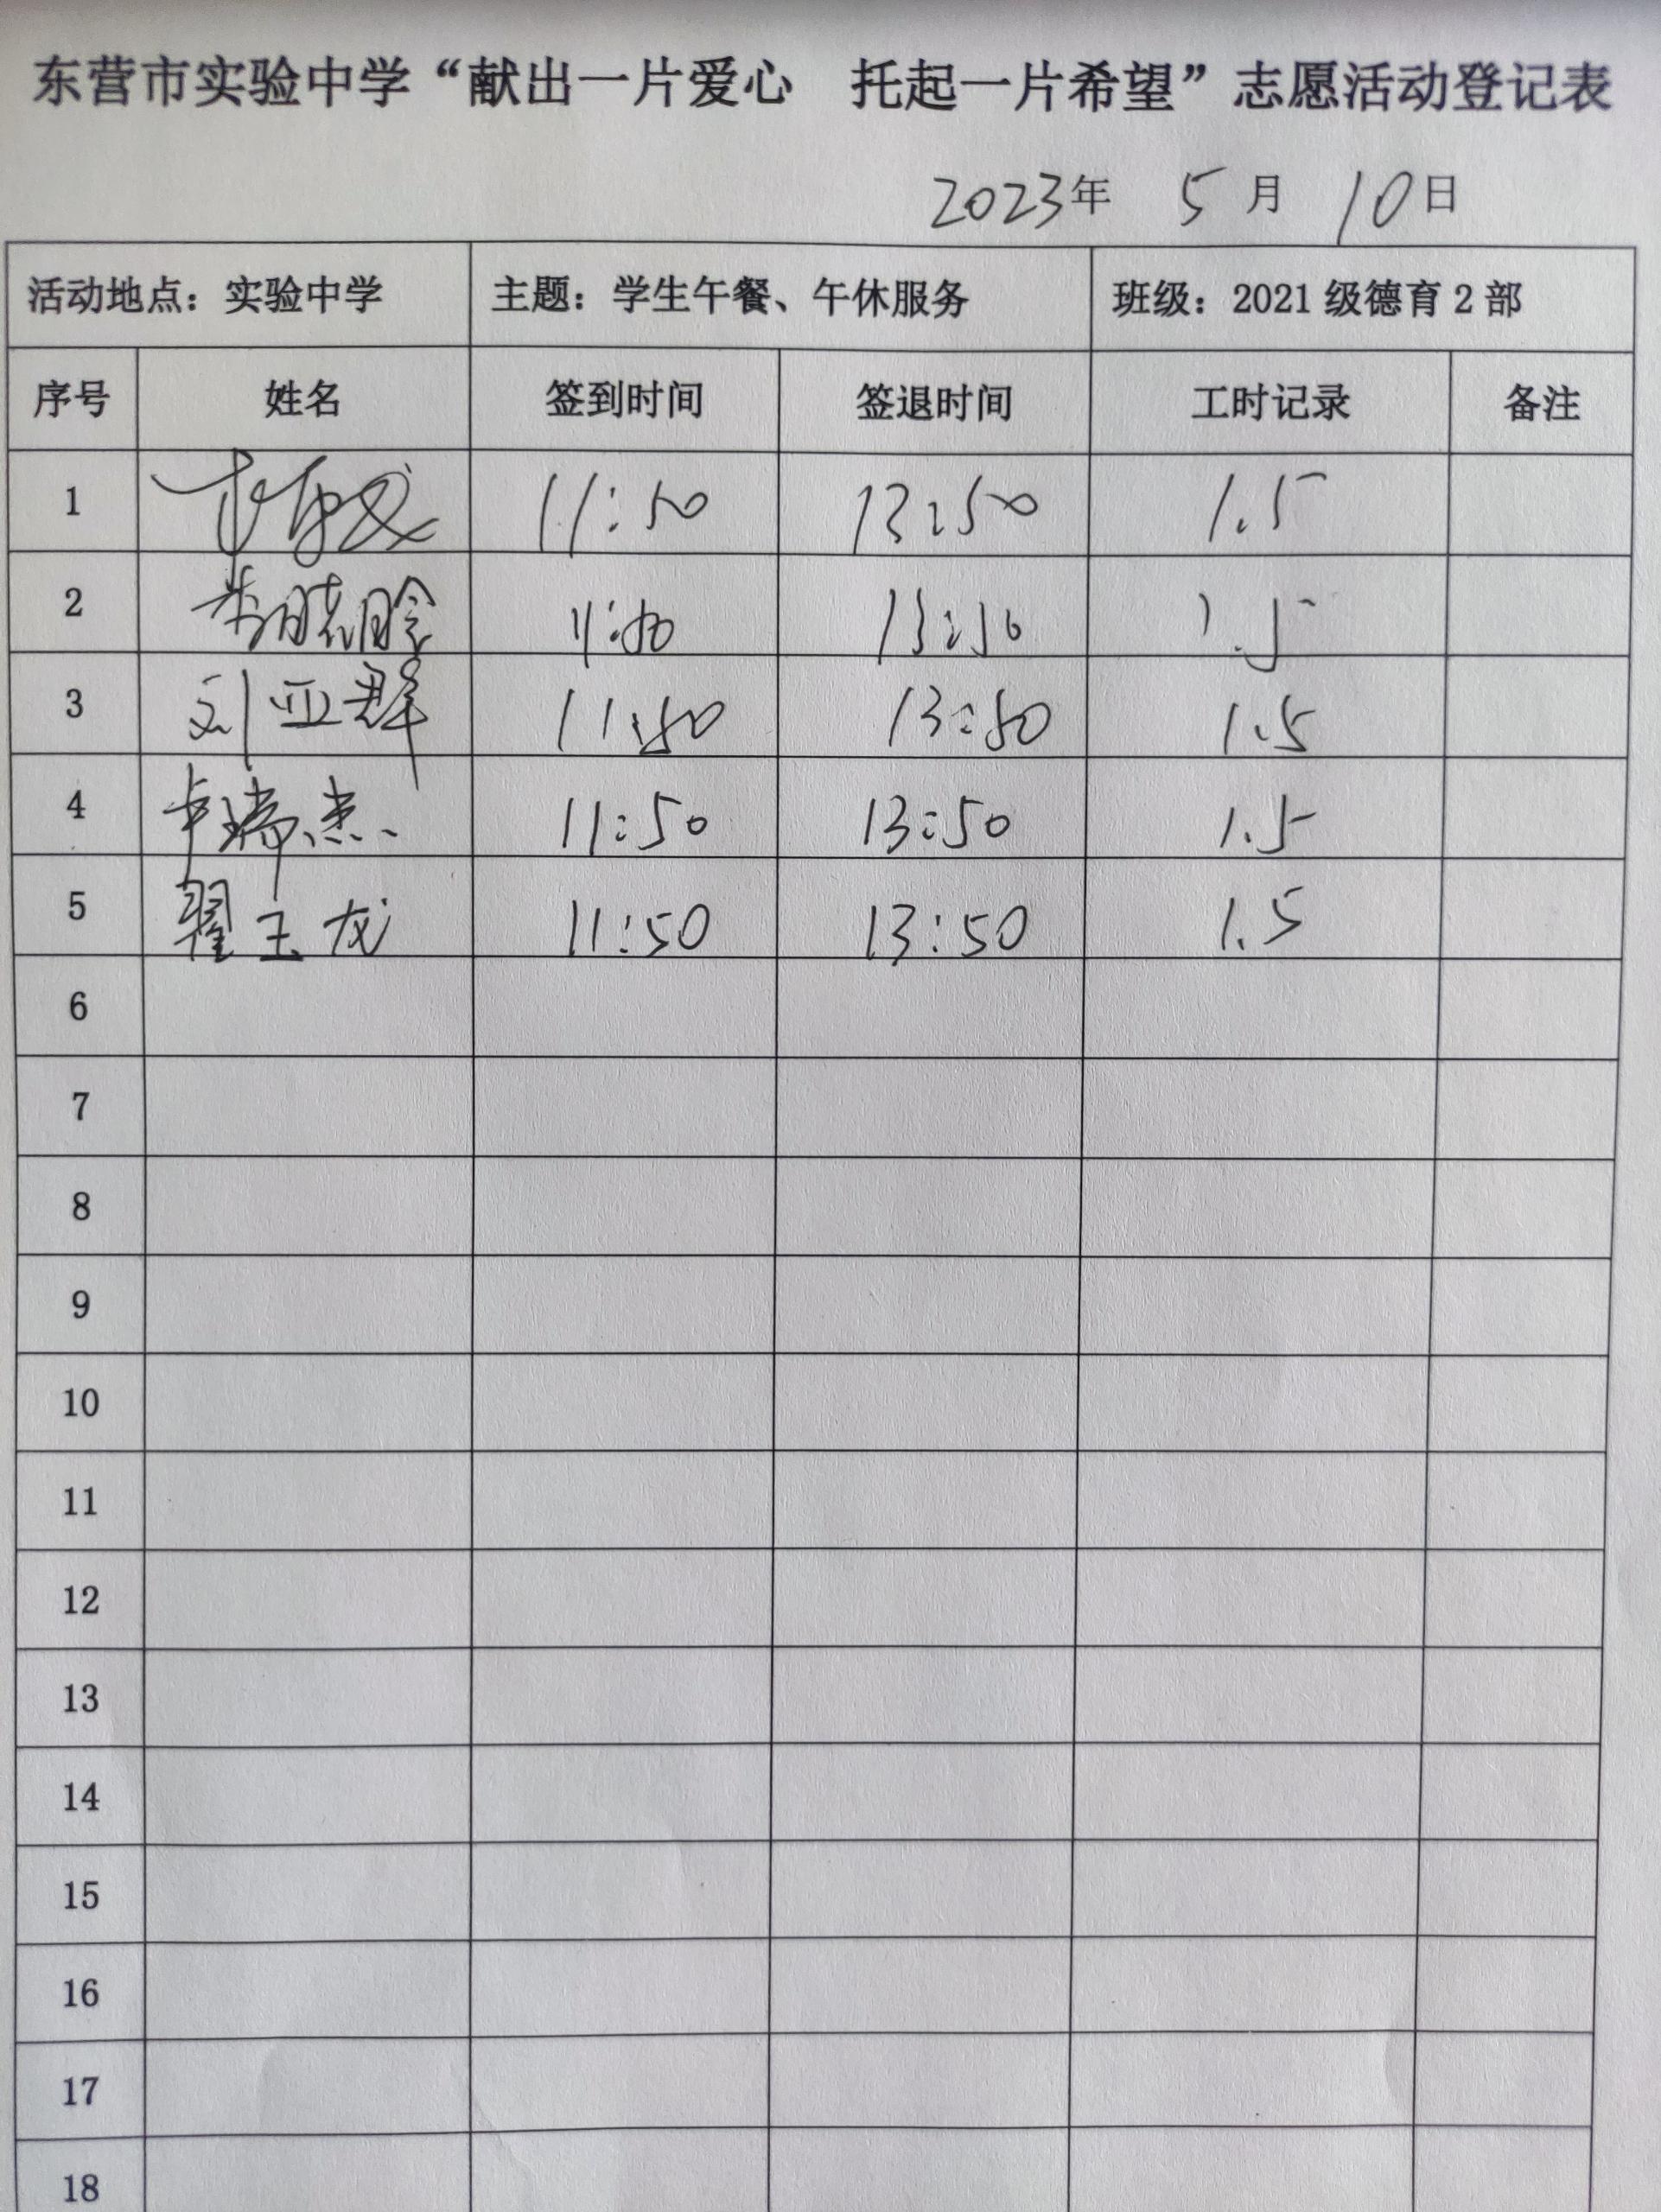 东营市实验中学“献出一片爱心 托起一片希望”志愿活动登记表
2023年 5月 10日
活动地点：实验中学 主题：学生午餐、午休服务 班级：2021级德育2部
序号 姓名 签到时间 签退时间 工时记录 备注
1 11:50 13:50 1.5
2 11:50 13:50 1.5
3 刘亚群 11:50 13:50 1.5
4 卢瑞杰 11:50 13:50 1.5
5 翟玉龙 11:50 13:50 1.5
6
7
8
9
10
11
12
13
14
15
16
17
18